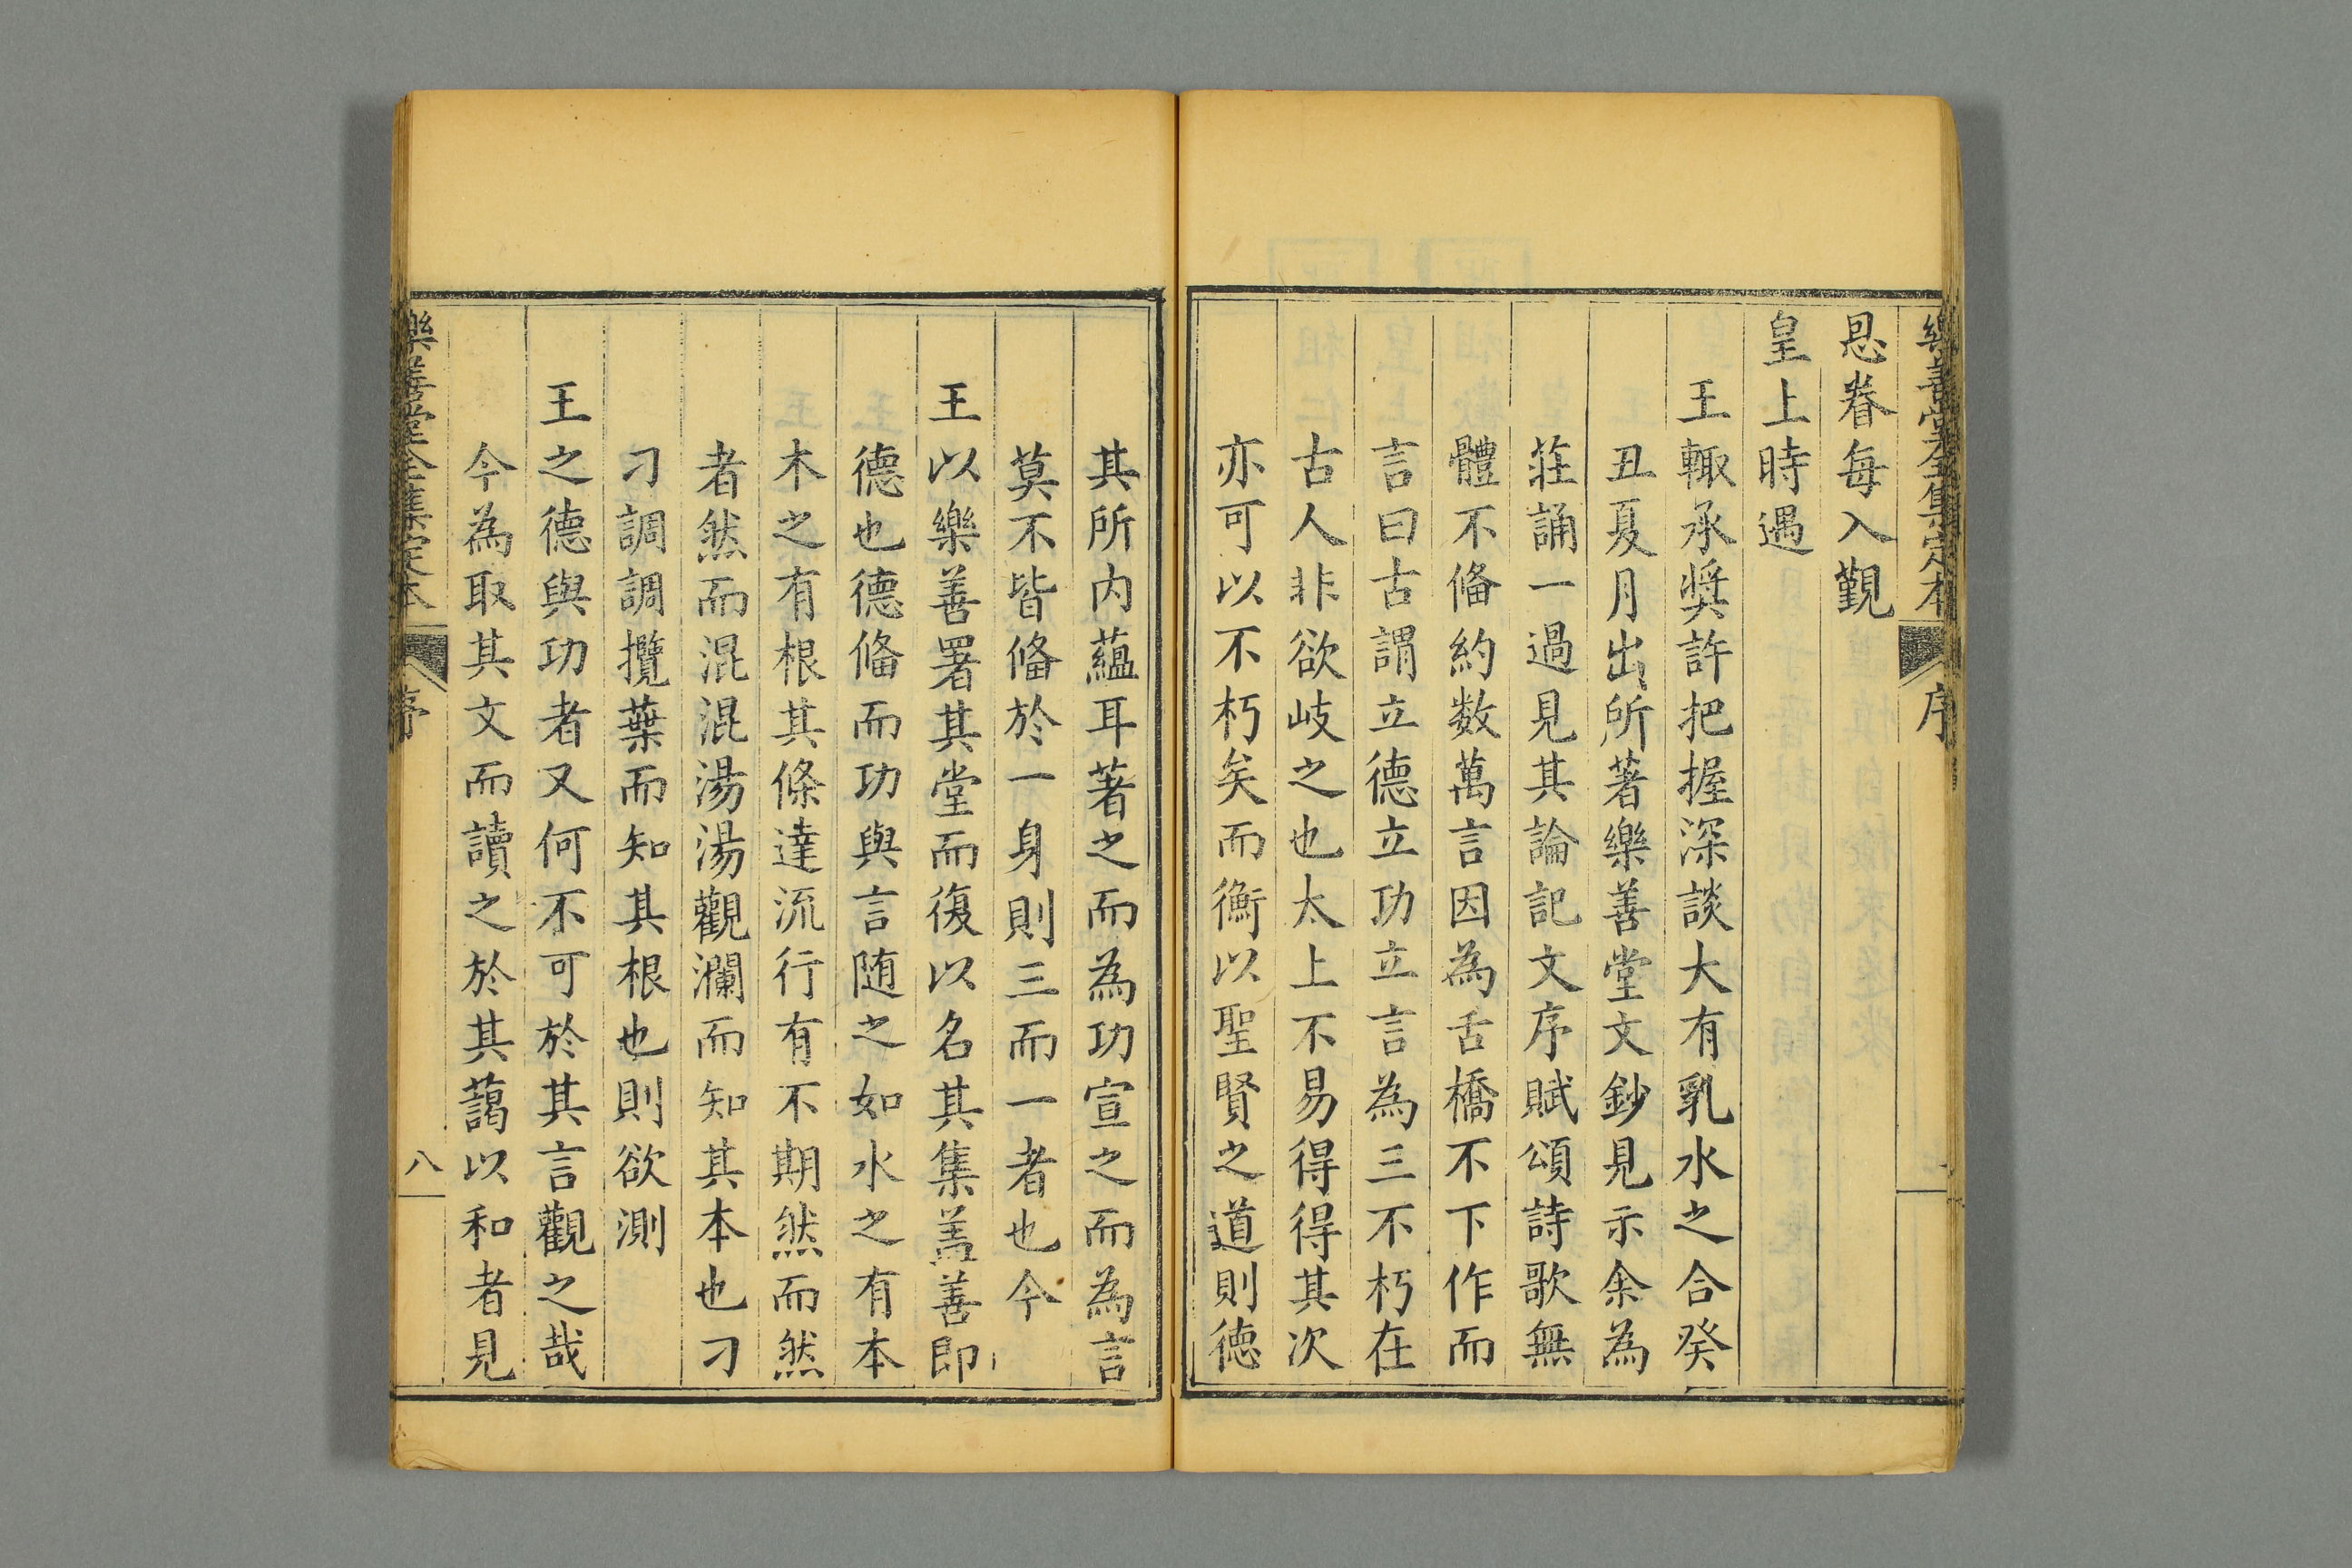 樂善堂全集定本 序
恩眷每入覲
皇上時遇
王輙承奨許把握深談大有乳水之合癸
丑夏月出所著樂善堂文鈔見示余為
莊誦一過見其論記文序賦頌詩歌無
體不俻約数萬言因為舌橋不下作而
言曰古謂立德立功立言為三不朽在
古人非欲岐之也太上不易得得其次
亦可以不朽矣而衡以聖賢之道則德
其所内蘊耳著之而為功宣之而為言
莫不皆俻於一身則三而一者也今
王以樂善署其堂而復以名其集盖善即
德也德俻而功與言随之如水之有本
木之有根其條達流行有不期然而然
者然而混混湯湯觀瀾而知其本也刁
刁調調攬葉而知其根也則欲測
王之德與功者又何不可於其言觀之哉
今為取其文而讀之於其藹以和者見
樂善堂全集定本 序 八